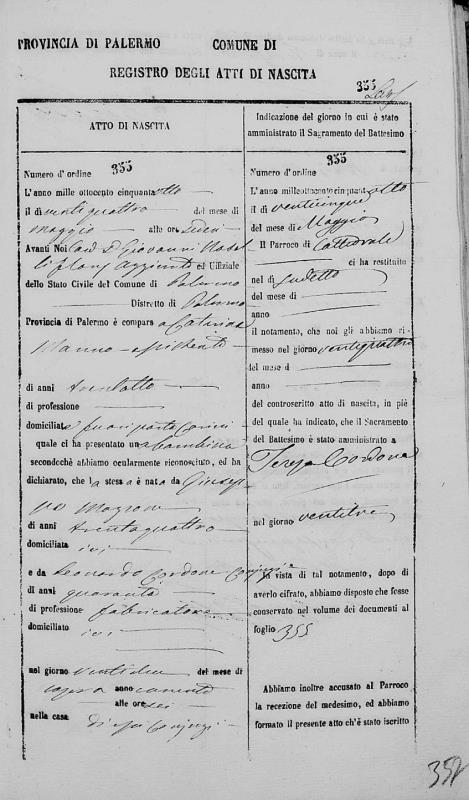 PROVINCIA DI PALERMO COMUNE DI
REGISTRO DEGLI ATTI DI NASCITA
355
ATTO DI NASCITA
Numero d' ordine 355
L'anno mille ottocento cinquantotto
il dì ventiquattro del mese di
maggio alle ore sedici
Avanti Noi Cav D Giovanni
Aggiunto ed Uffiziale
dello Stato Civile del Comune di Palermo
Distretto di Palermo
Provincia di Palermo è comparsa Catarina
Manno
di anni trentotto
di professione
domiciliata fuori porta Carini
quale ci ha presentato una bambina
secondochè abbiamo ocularmente riconosciuto, ed ha
dichiarato, che la stessa è nata da Giusep
pa
di anni trentaquattro
domiciliata ivi
e da Leonardo Cordone Conjugi
di anni quaranta
di professione fabricatore
domiciliato ivi
nel giorno ventidue del mese di
anno corrente
alle ore sei
nella casa di essi Conjugi
Indicazione del giorno in cui è stato
amministrato il Sagramento del Battesimo
355
Numero d' ordine
L'anno milleottocento cinquantotto
il dì venticinque
del mese di Maggio
Il Parroco di Cattedrale
ci ha restituito
nel dì sudetto
del mese di
anno
il notamento, che noi gli abbiamo ri-
messo nel giorno ventiquattro
del mese d
anno
del controscritto atto di nascita, in piè
del quale ha indicato, che il Sacramento
del Battesimo è stato amministrato a
Teresa Cordone
nel giorno ventitre
In vista di tal notamento, dopo di
averlo cifrato, abbiamo disposto che fosse
conservato nel volume dei documenti al
foglio 355
Abbiamo inoltre accusato al Parroco
la recezione del medesimo, ed abbiamo
formato il presente atto ch'è stato iscritto